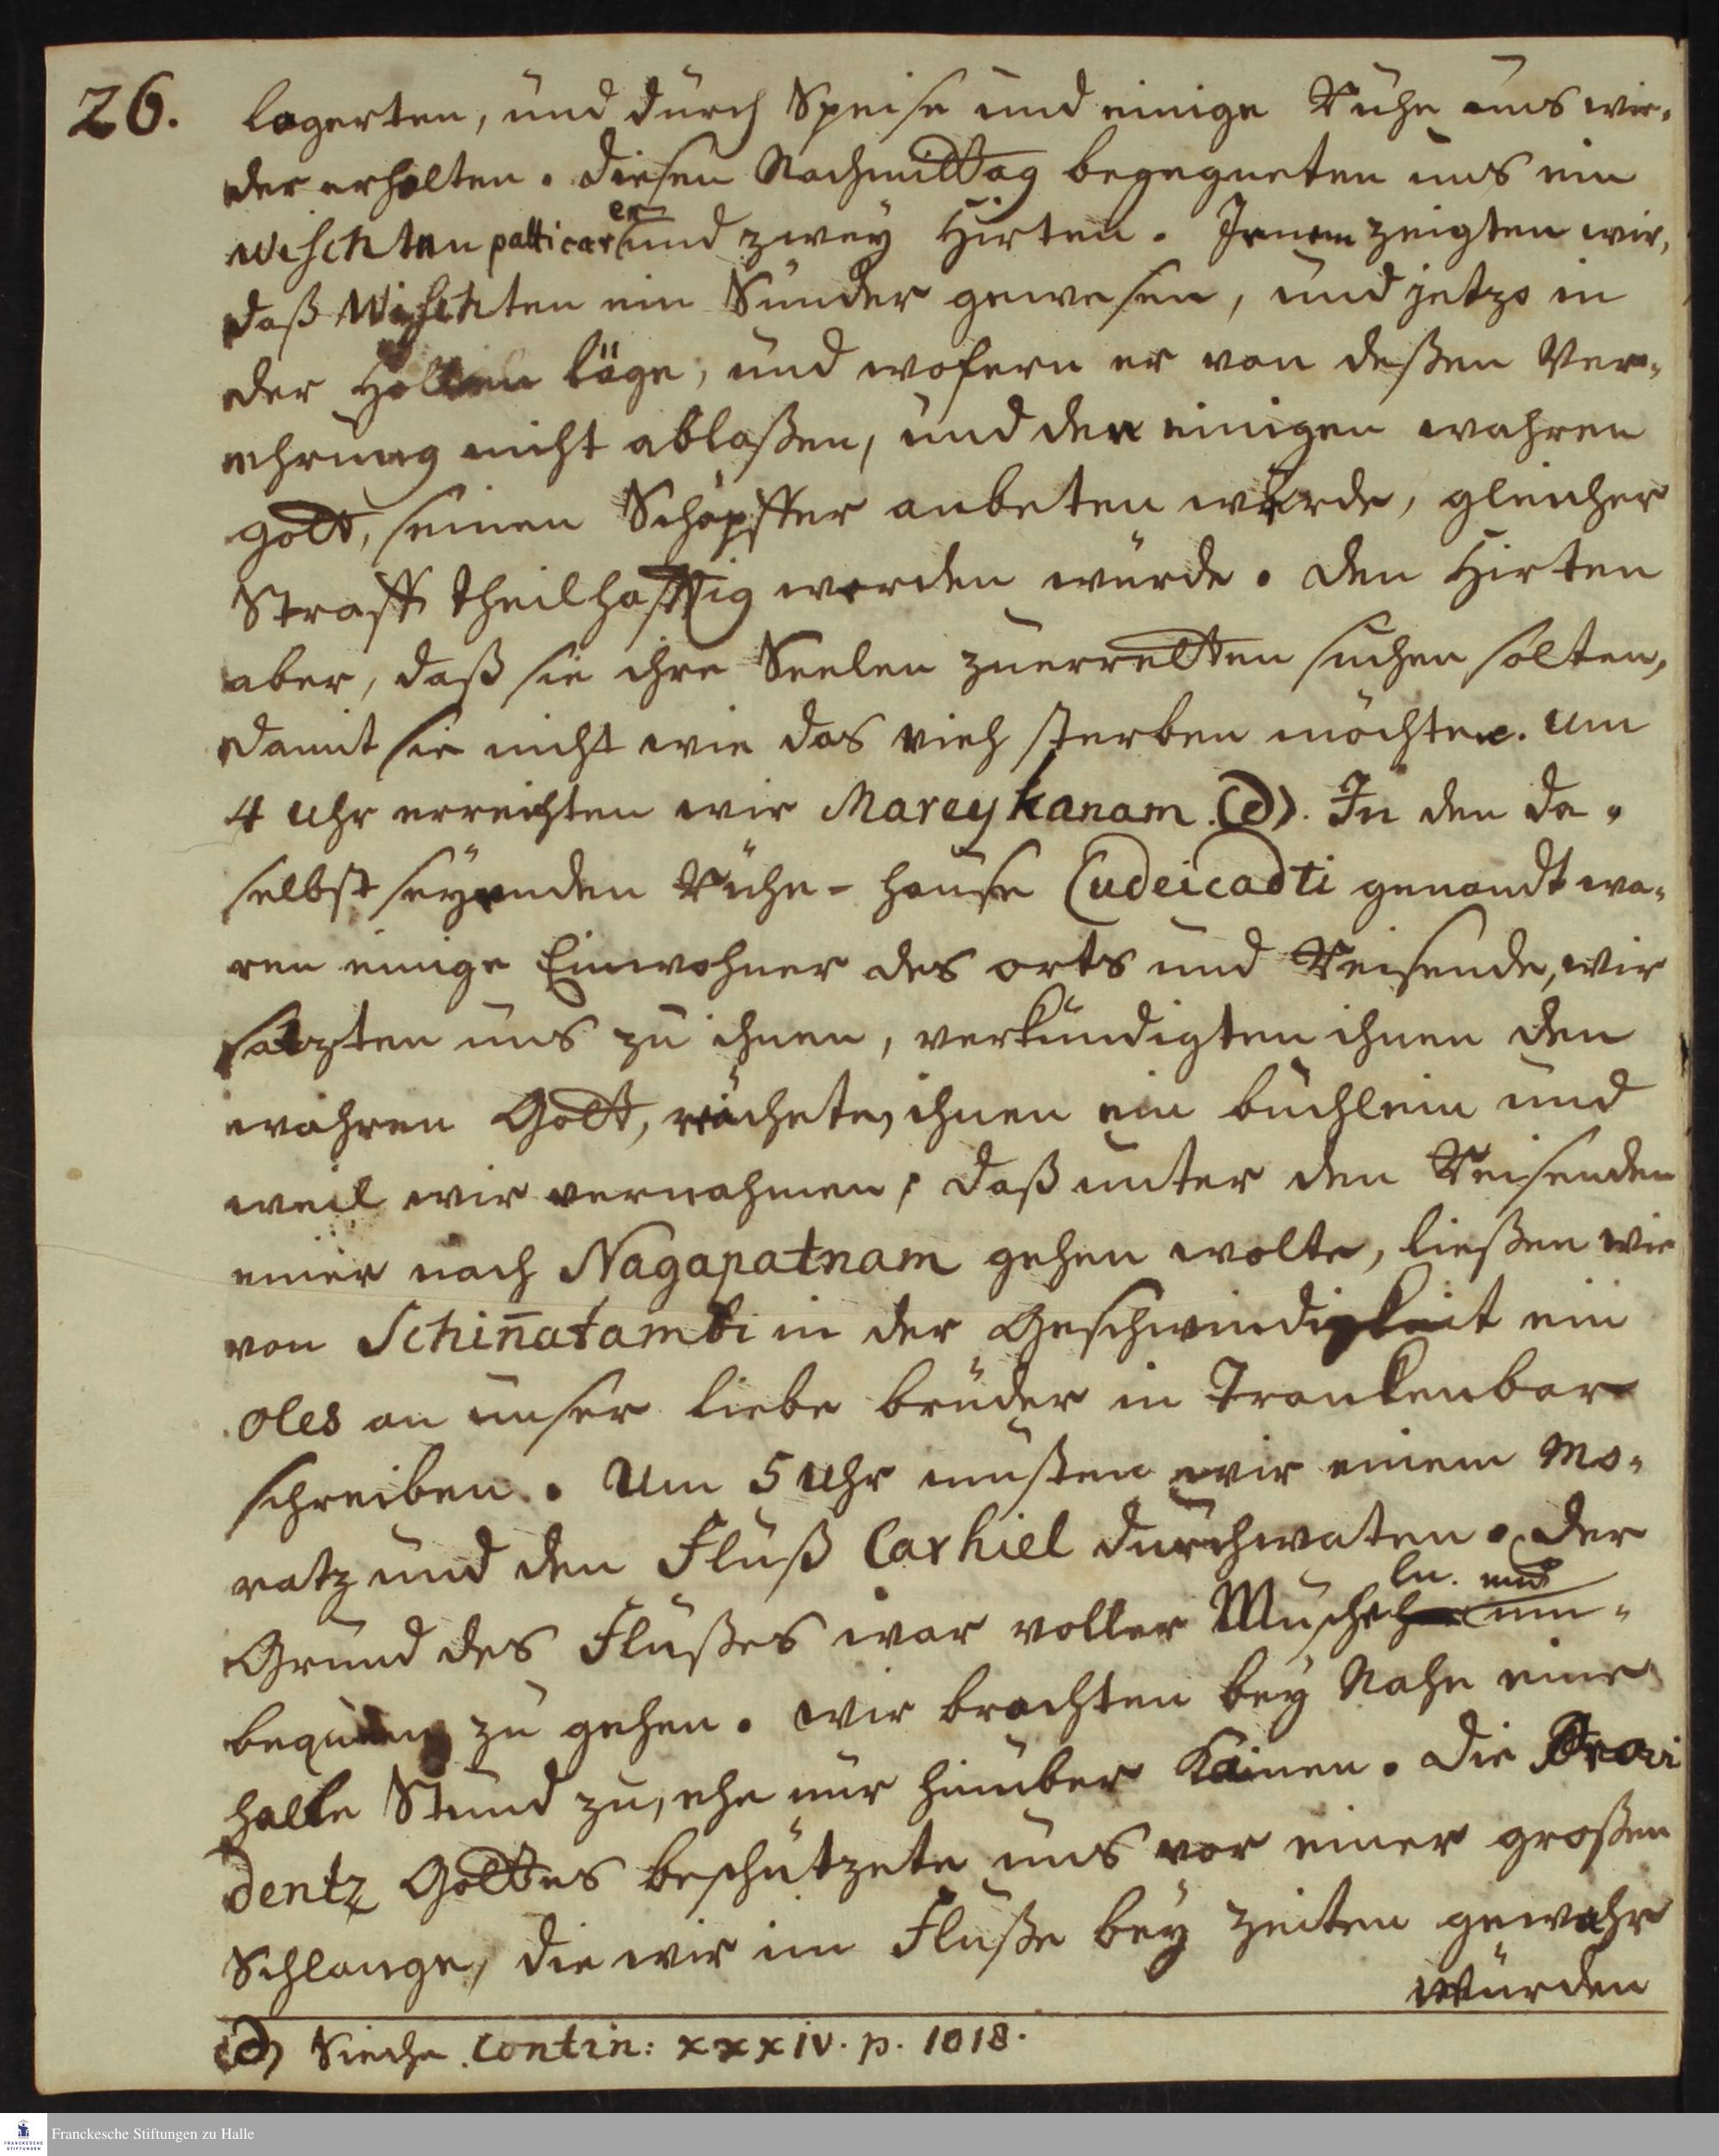 26.
lagerten, und durch Speise und einige Ruhe uns wie-
der erholten. Diesen Nachmittag begegneten uns ein
Wischtnu patticarer und zwey Hirten. Jenem zeigten wir,
daß Wischten ein Sünder gewesen, und jetzo in
der Höllen läge, und wofern er von deßen Ver-
ehrung nicht ablaßen, und den einigen wahren
Gott, seinen Schöpffer anbeten würde, gleicher
Straff theilhafftig werden würde. Den Hirten
aber, daß sie ihre Seelen zuerretten suchen solten,
damit sie nicht wie das vieh sterben möchten. Um
4 Uhr erreichten wir Mareykanam (d). In den da-
selbst seyenden Ruhe-hause Cudeicadti genandt wa-
ren einige Einwohner des orts und Reisende, wir
satzten uns zu ihnen, verkündigten ihnen den
wahren Gott, reicheten ihnen ein büchlein und
weil wir vernahmen, daß unter den Reisenden
einer nach Nagapatnam gehen wolte, ließen wir
von Schin̄atambi in der Geschwindigkeit ein
oles an unser liebe brüder in Trankenbar
schreiben. Um 5 Uhr mußten wir einem Mo-
ratz und den Fluß Carhiel durchwaten. Der
ln. und
Grund des Flußes war voller Musche um-
bequem zu gehen. Wir brachten bey Nahe eine
halbe Stund zu, ehe wir hinüber kamen. Die Provi
dentz Gottes beschützete uns vor einer großen
Schlange, die wir im Fluße bey Zeiten gewahr
wurden
(d) Siehe Contin: xxxiv. p. 1018.
Franckesche Stiftungen zu Halle